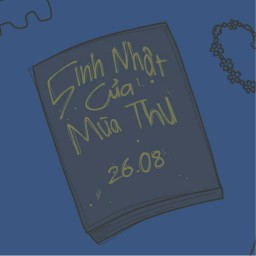 Sinh Nhật
Của
Mùa Thu
26.08